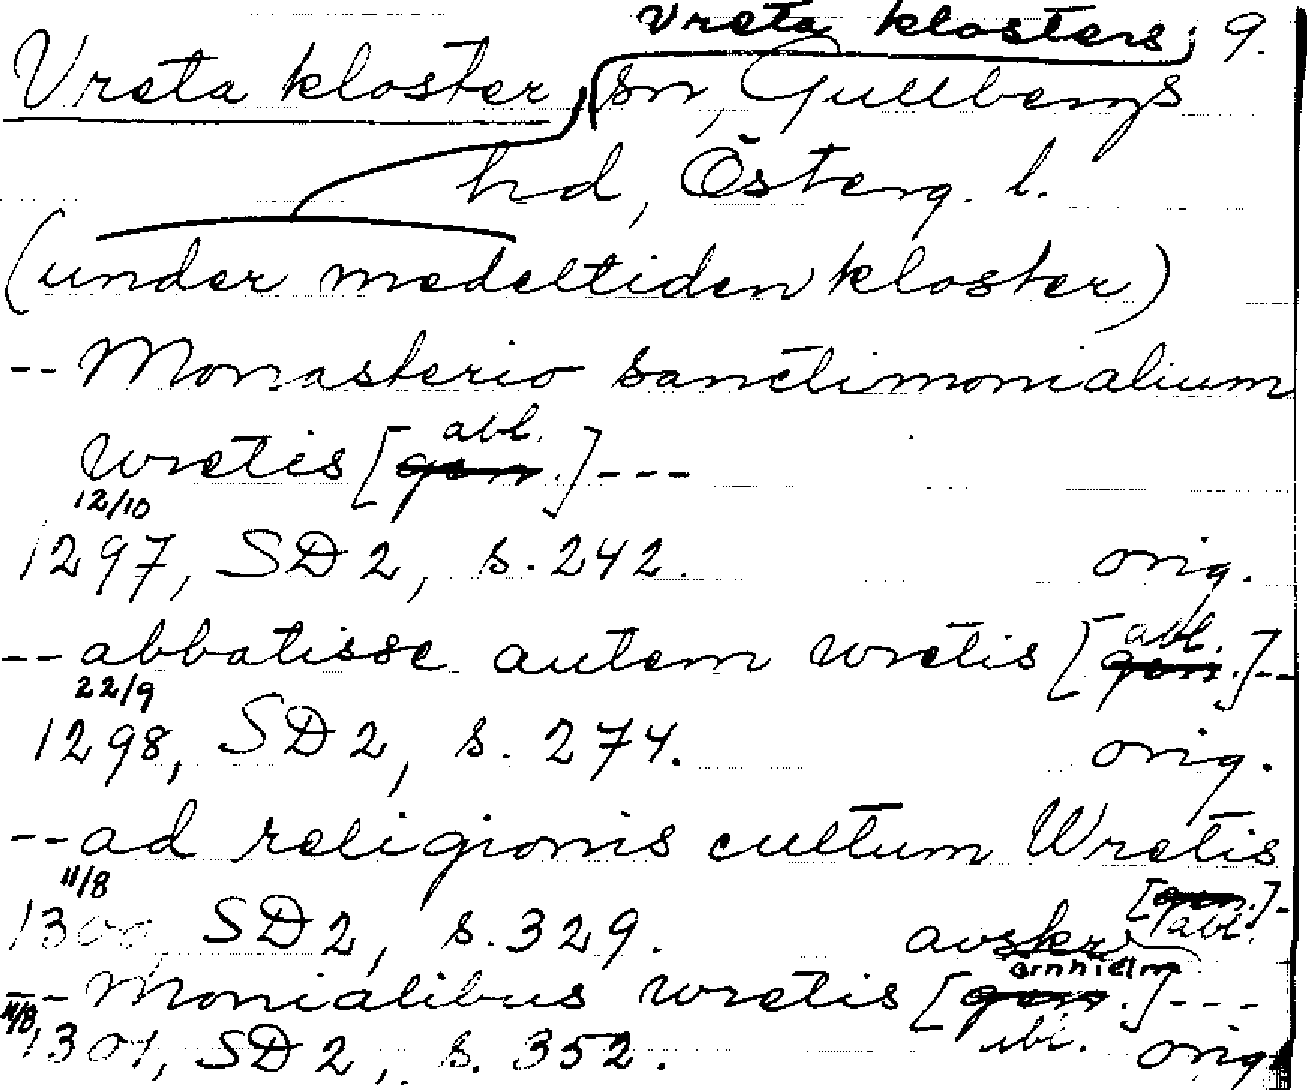 Vreta klosters 9.
Vreta kloster sn, Gullbergs
hd, Österg. l.
(under medeltiden kloster)
-- Monasterio sanctimonialium
abl.
wretis [gen.] ---
12/10
1297, SD 2, s. 242. orig.
-- abbatisse autem wretis [gen.] --
abl.
22/9
1298, SD 2, s. 274. orig.
-- ad religionis cultum Wretis
[gen.] -
abl.
11/8
1300, SD 2, s. 329. avskr
örnhielm
-- Monialibus wretis [gen.] ---
abl.
11/8
1301, SD 2, s. 352. orig.